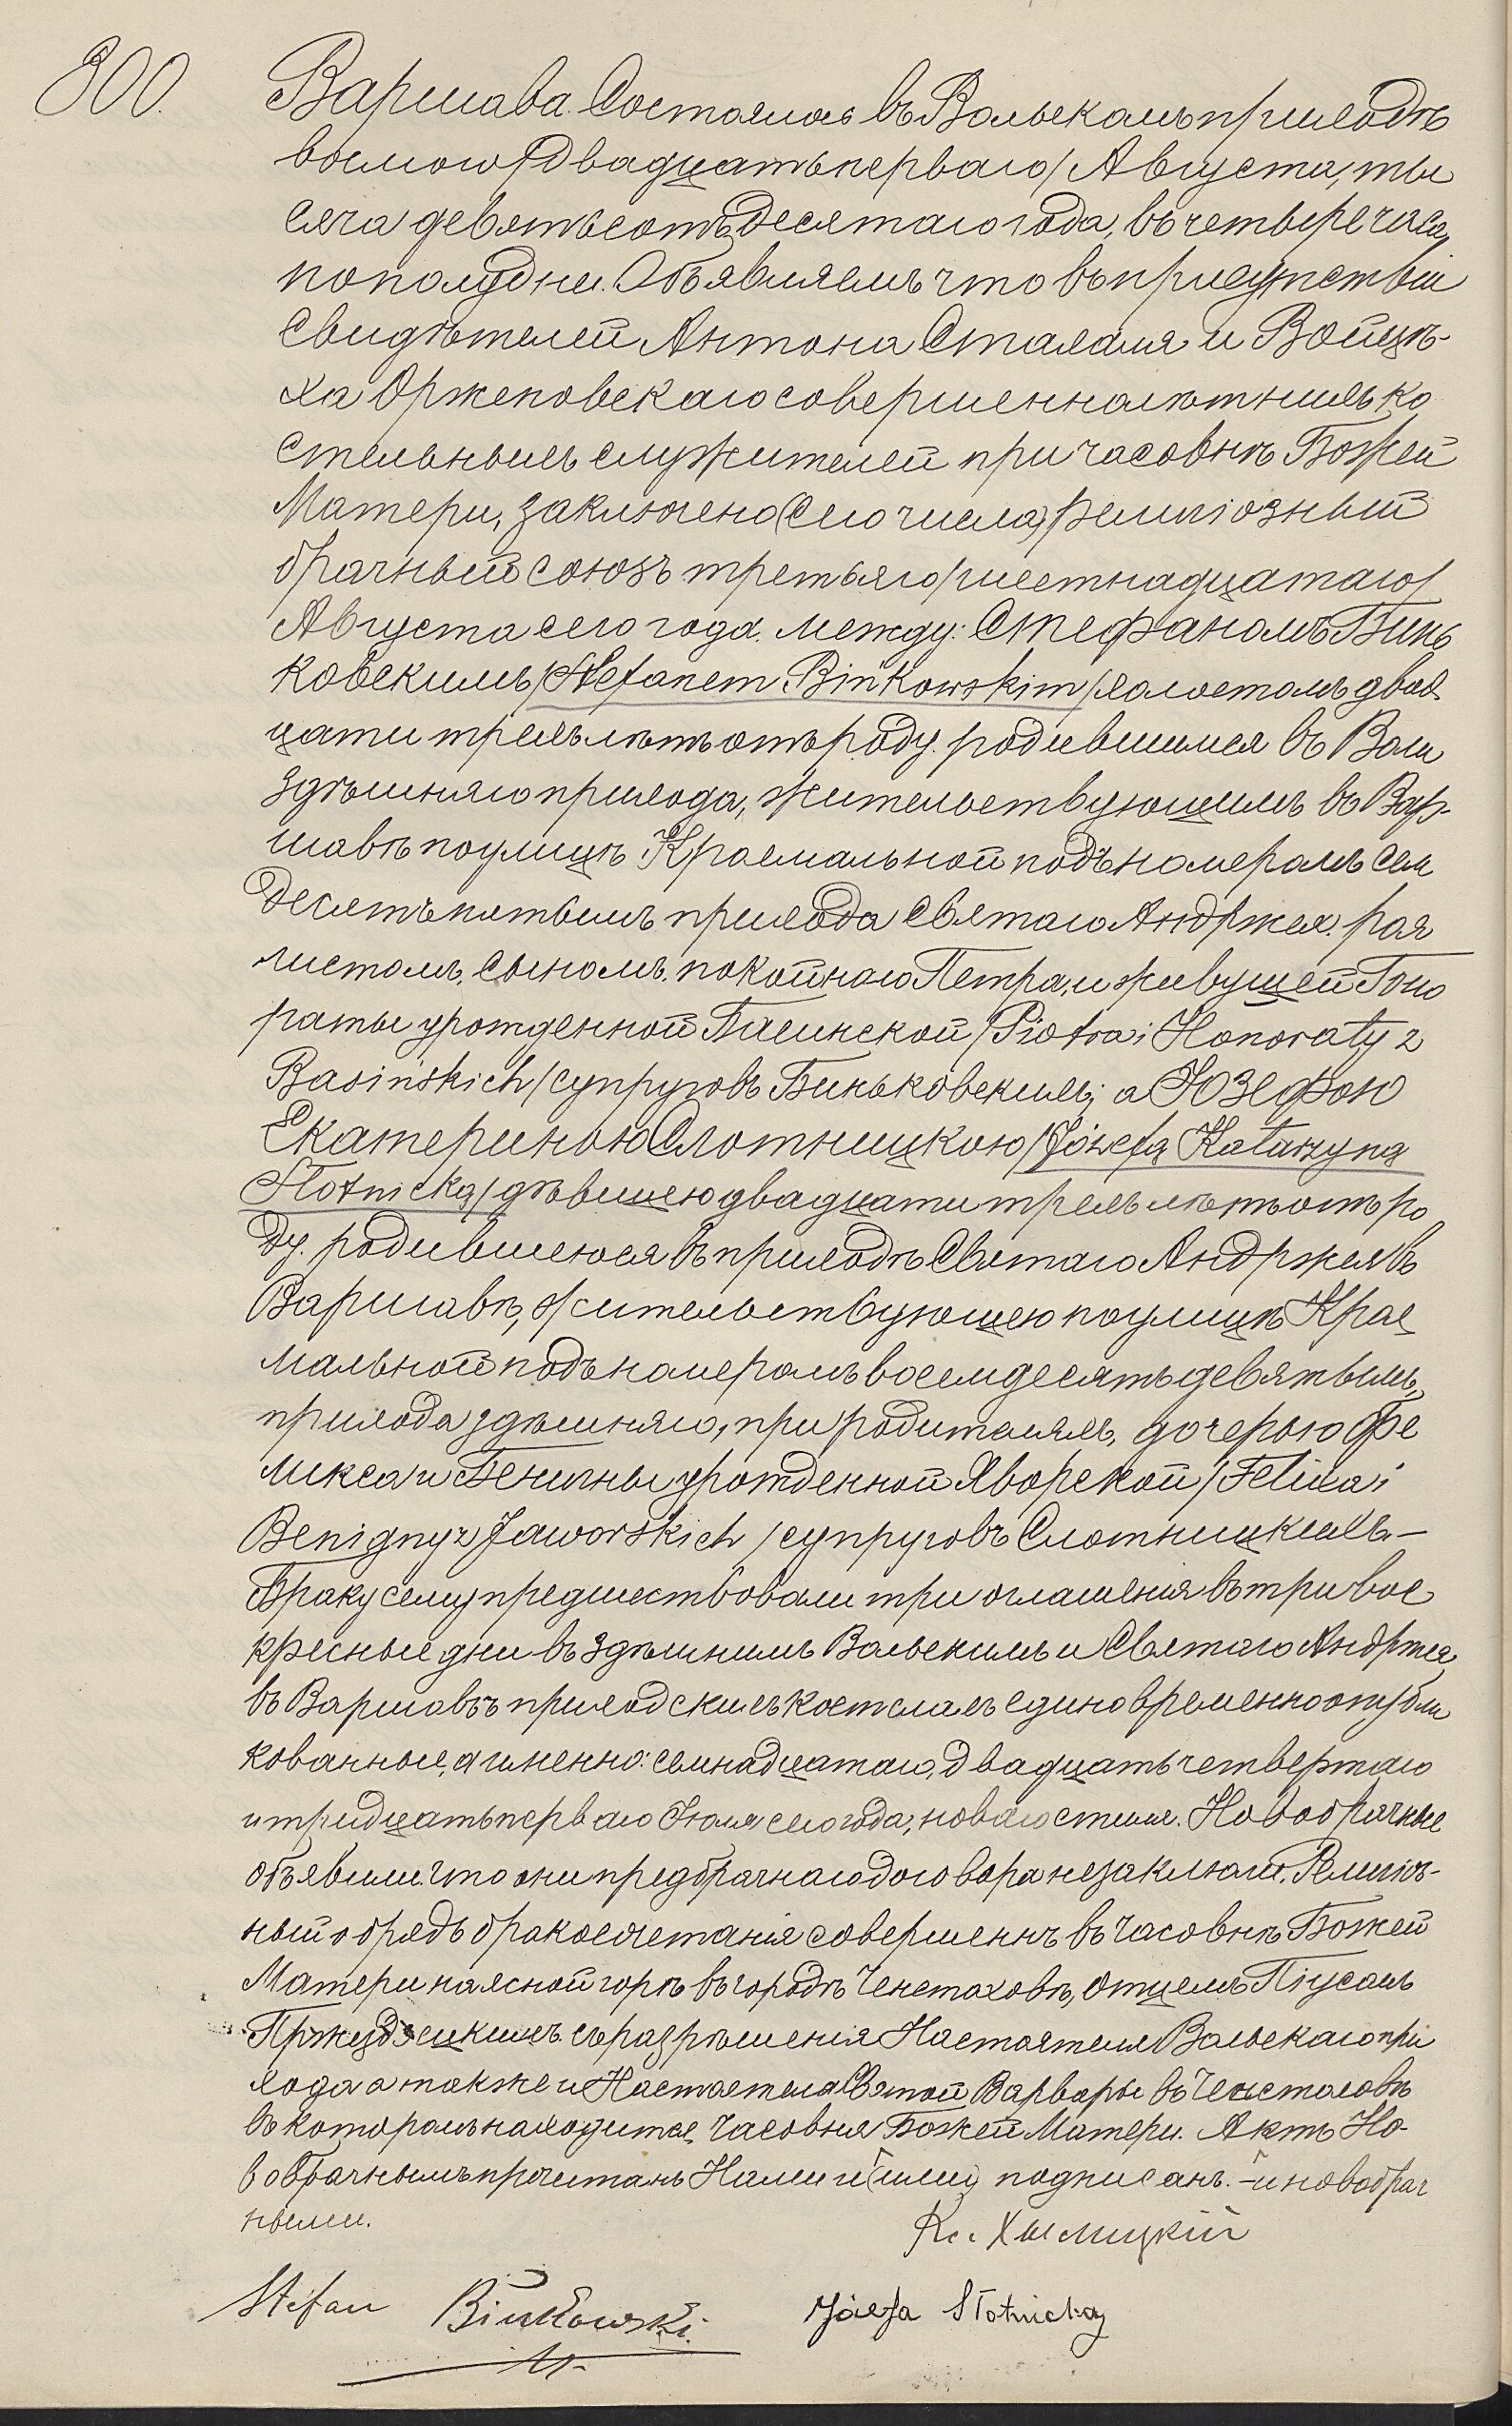 300.
Варшава. Состоялось въ Вольскомъ приходѣ
восьмого /двадцать перваго/ Августа, ты
сяча девятьсотъ десятаго года, въ четыре часа
по полудни. Объявляемъ что въ присутствіи
свидѣтелей Антона Сталаля и Войцѣ-
ха Орженовскаго совершеннолѣтнихъ ко
стельныхъ служителей при часовнѣ Божей
Матери, заключено (сего числа) религіозный
брачный союзъ третьяго /шестнадцатаго/
Августа сего года. между: Стефаномъ Бинь
ковскимъ /Stefanem Binkowskim/ холостомъ двад
цати трехъ лѣтъ отъ роду. родившимся въ Воли
здѣшняго прихода, жительствующимъ въ Вар-
шавѣ по улицѣ Крохмальной подъ номеромъ сем
десятъ пятымъ прихода Святаго Андржея. рая
листомъ, сыномъ. покойнаго Петра, и живущей Гоно
раты урожденной Басинской /Piotra i Honoraty z
Basińskich/ супруговъ Биньковскихъ; а Юзефою
Екатериною Слотницкою /Józefą Katarzyną
Słotnicką/ дѣвицею двадцати трехъ лѣтъ отъ ро
ду. родившеюся въ приходѣ Святаго Андржея въ
Варшавѣ, жительствующею по улицѣ Крох
мальной подъ номеромъ восемдесятъ девятымъ,
прихода здѣшняго, при родителяхъ, дочерью Фе
ликса и Бенигны урожденной Яворской /Felixa i
Benigny z Jaworskich/ супруговъ Слотницкихъ —
Браку сему предшествовали три оглашенія въ три вос
кресные дни въ здѣшнимъ Вольскимъ и Святаго Андржея
въ Варшавѣ приходскихъ костелахъ единовременно опубли
кованные, а именно: семнадцатаго, двадцать четвертаго
и тридцать перваго Іюля сего года, новаго стиля. Новобрачные
объявили что они предбрачнаго договора не заключили. Религіоз-
ный обрядъ бракосочетанія совершенъ въ часовнѣ Божей
Матери на ясной горѣ въ городѣ Ченстоховѣ, Отцемъ Піусомъ
Пржездзецкимъ съ разрѣшенія Настоятеля Вольскаго при
хода а также и Настоятеля Святой Варвары въ Ченстоховѣ
въ которомъ находится часовня Божей Матери. Актъ Но-
вобрачнымъ прочитанъ Нами и (ими) подписанъ. – и новобрач
ными.
Кс. Хмѣлицкій
Stefan Binkowski. Józefa Słotnicka